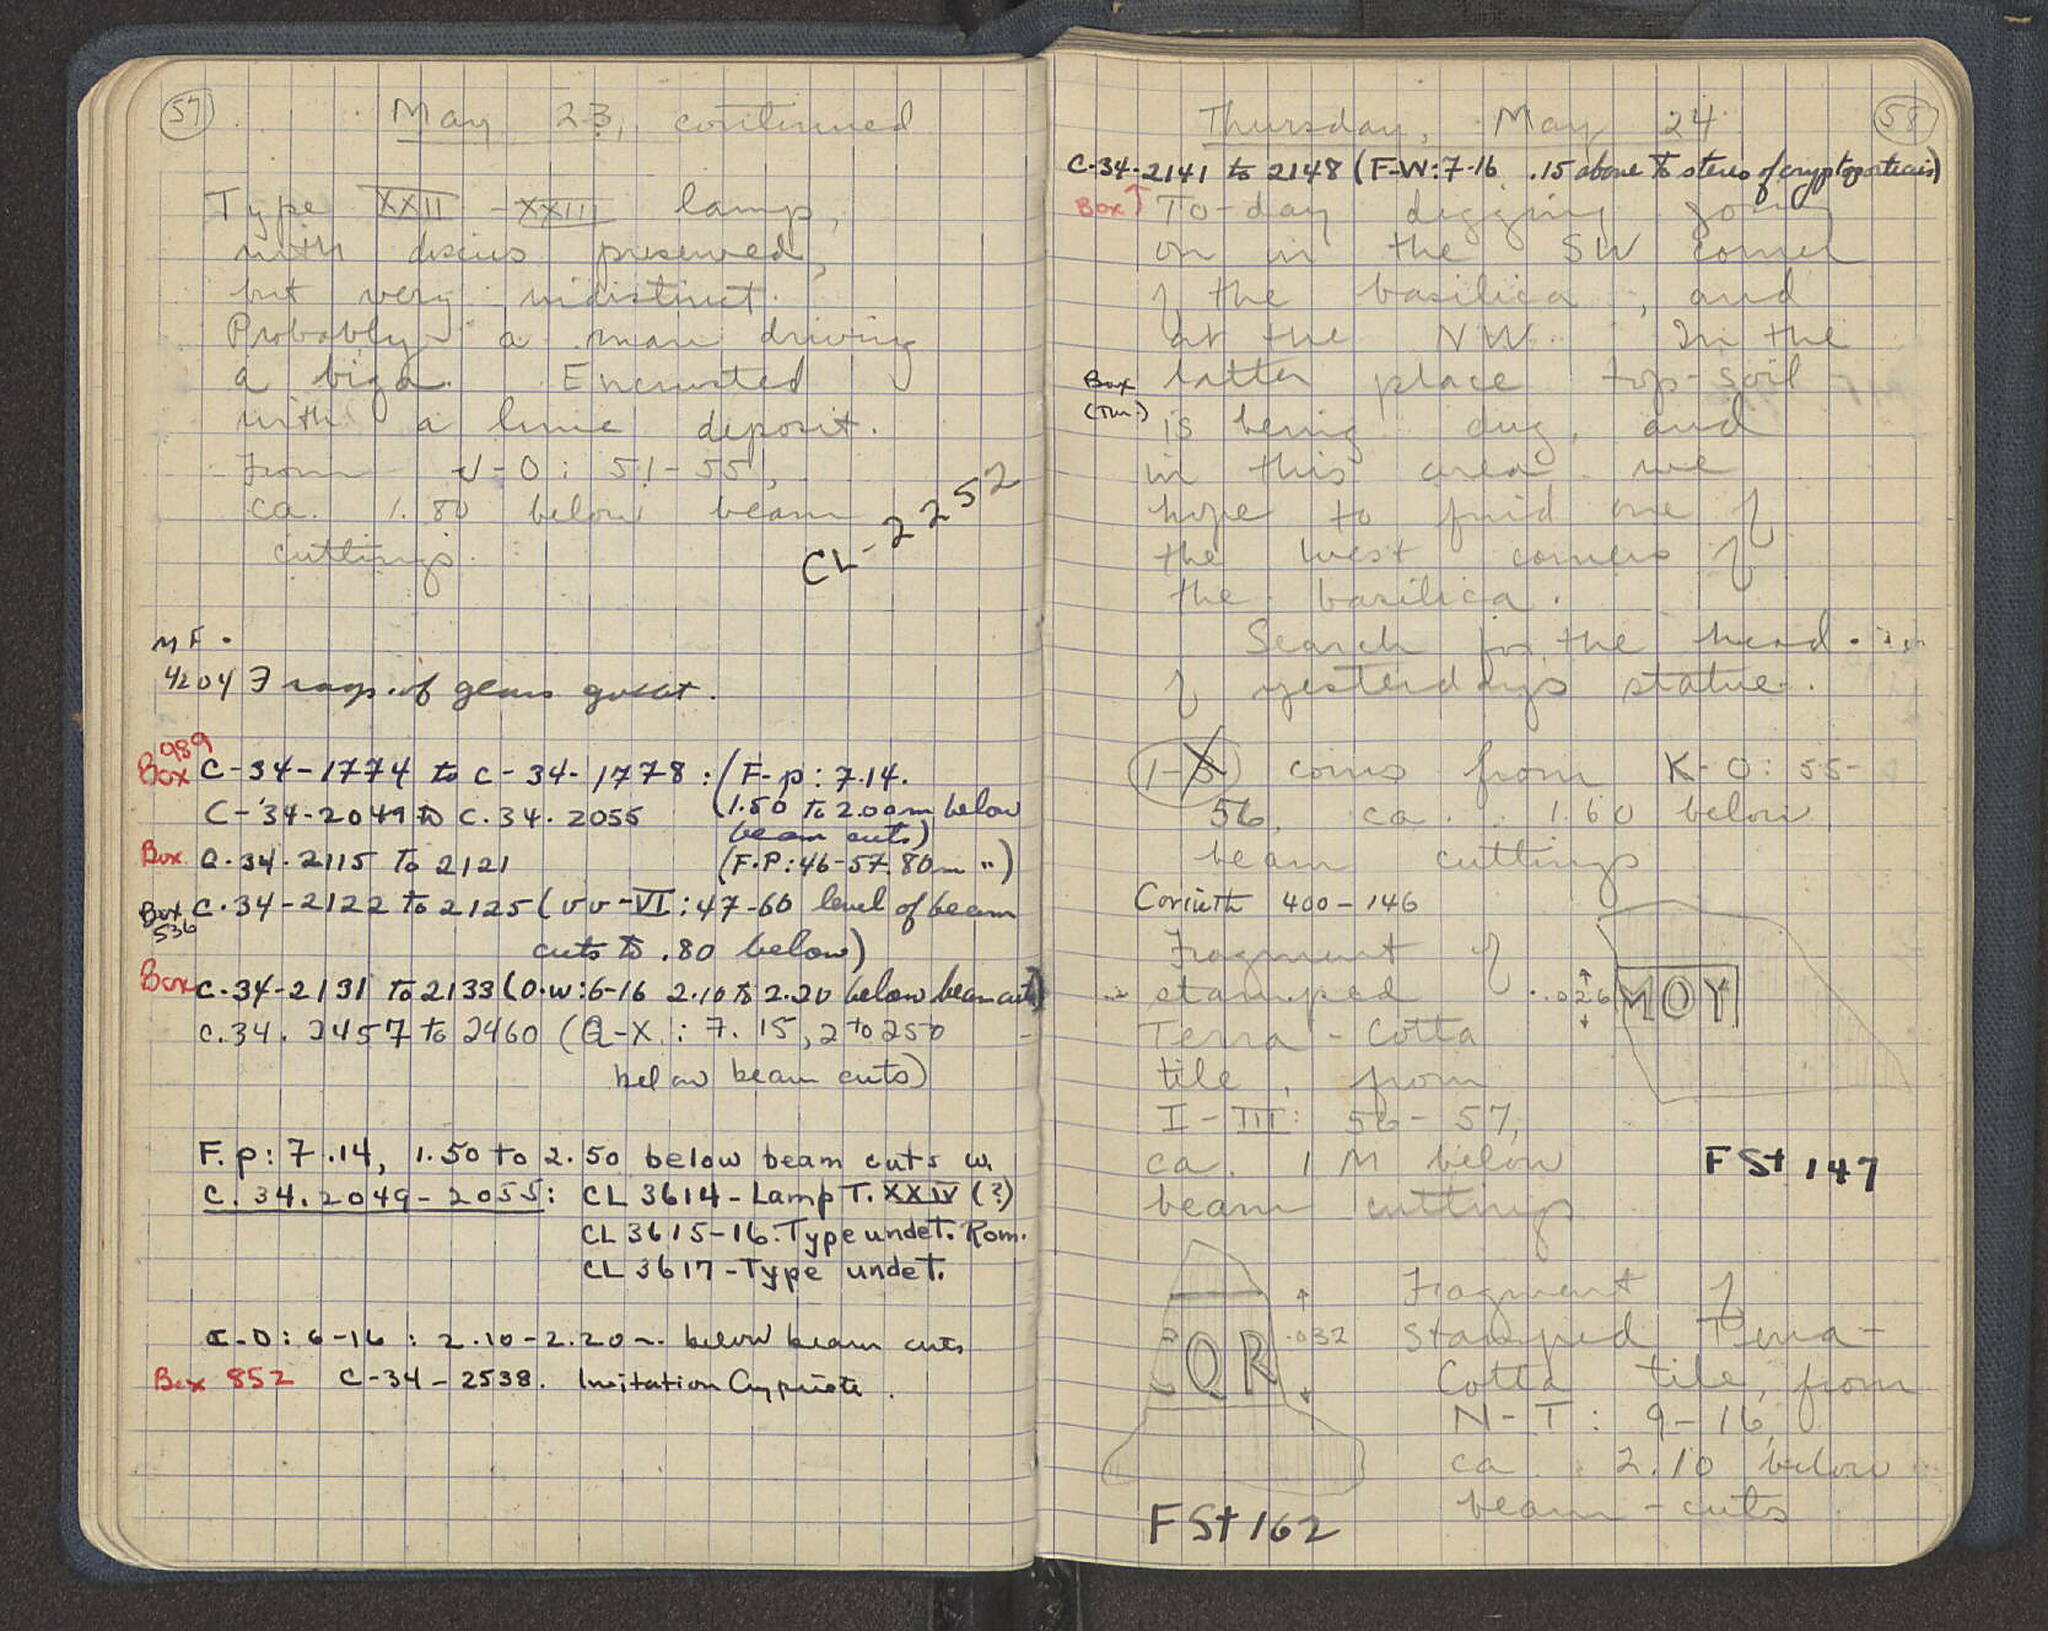 57
May 23, continued
Type XXII - XXIII lamp,
with discus preserved,
but very indistinct.
Probably a man driving
a biga. Encrusted
with a lime deposit.
From -O: 51-55,
ca. 1.80 below beam
cuttings.
CL-2252
MF.
4204 Frags. of glass
Box 989 C-34-1774 to C-34-1778: (F-p: 7.14.
C-'34-2049 to C.34.2055 (1.50 to 2.00m below
beam cuts)
Box C.34.2115 to 2121 (F.P: 46-57. 80m ")
Box 536 C.34-2122 to 2125 (VV-VI: 47-60 level of beam
cuts to .80 below)
Box C.34-2131 to 2133 (O.W: 6-16 2.10 to 2.20 below beam cuts)
C.34. 2457 to 2460 (Q-X: 7.15, 2 to 250
below beam cuts)
F.p: 7.14, 1.50 to 2.50 below beam cuts w.
C.34.2049-2055: CL 3614 - Lamp T. XXIV (?)
CL 3615-16. Type undet. Rom.
CL 3617 - Type undet.
-O: 6-16: 2.10-2.20 m. below beam cuts
Box 852 C-34-2538. Imitation Cypriote.
58
Thursday, May 24
C-34-2141 to 2148 (F-W: 7-16 .15 above to steros of cryptoporticus)
Box ↑
To-day digging going
on in the SW corner
of the basilica, and
at the NW. In the
Box latter place top-soil
is being dug, and
in this area we
hope to find one of
the west corners of
the basilica.
Search for the head
of yesterday's statue.
1-5 coins from K-O: 55-
56, ca. 1.60 below
beam cuttings
Corinth 400-146
Fragment of
stamped
Terra-Cotta
tile, from
I-III: 56-57,
ca. 1 M below
beam cuttings
.026
MOY
FSt 147
QR
.032
FSt 162
Fragment of
stamped Terra-
Cotta tile, from
N-T: 9-16,
ca. 2.10 below
beam-cuts